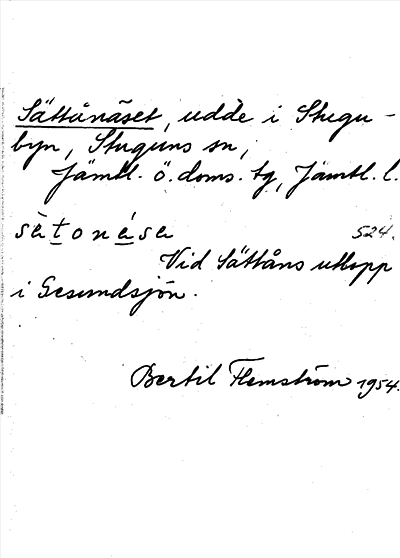 Sättånäset, udde i Stugu-
byn, Stuguns sn,
Jämtl. ö. doms. tg, Jämtl. l.
sètonésa 524.
Vid Sättåns utlopp
i Gesundsjön.
Bertil Flemström 1954.